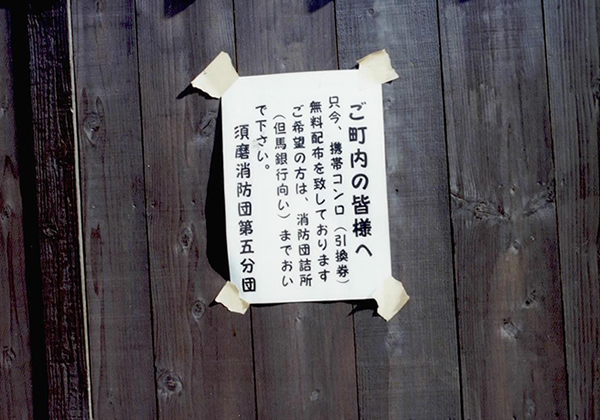 ご町内の皆様へ
只今、携帯コンロ（引換券）
無料配布を致しております
ご希望の方は、消防団詰所
（但馬銀行向い）までおい
で下さい。
須磨消防団第五分団